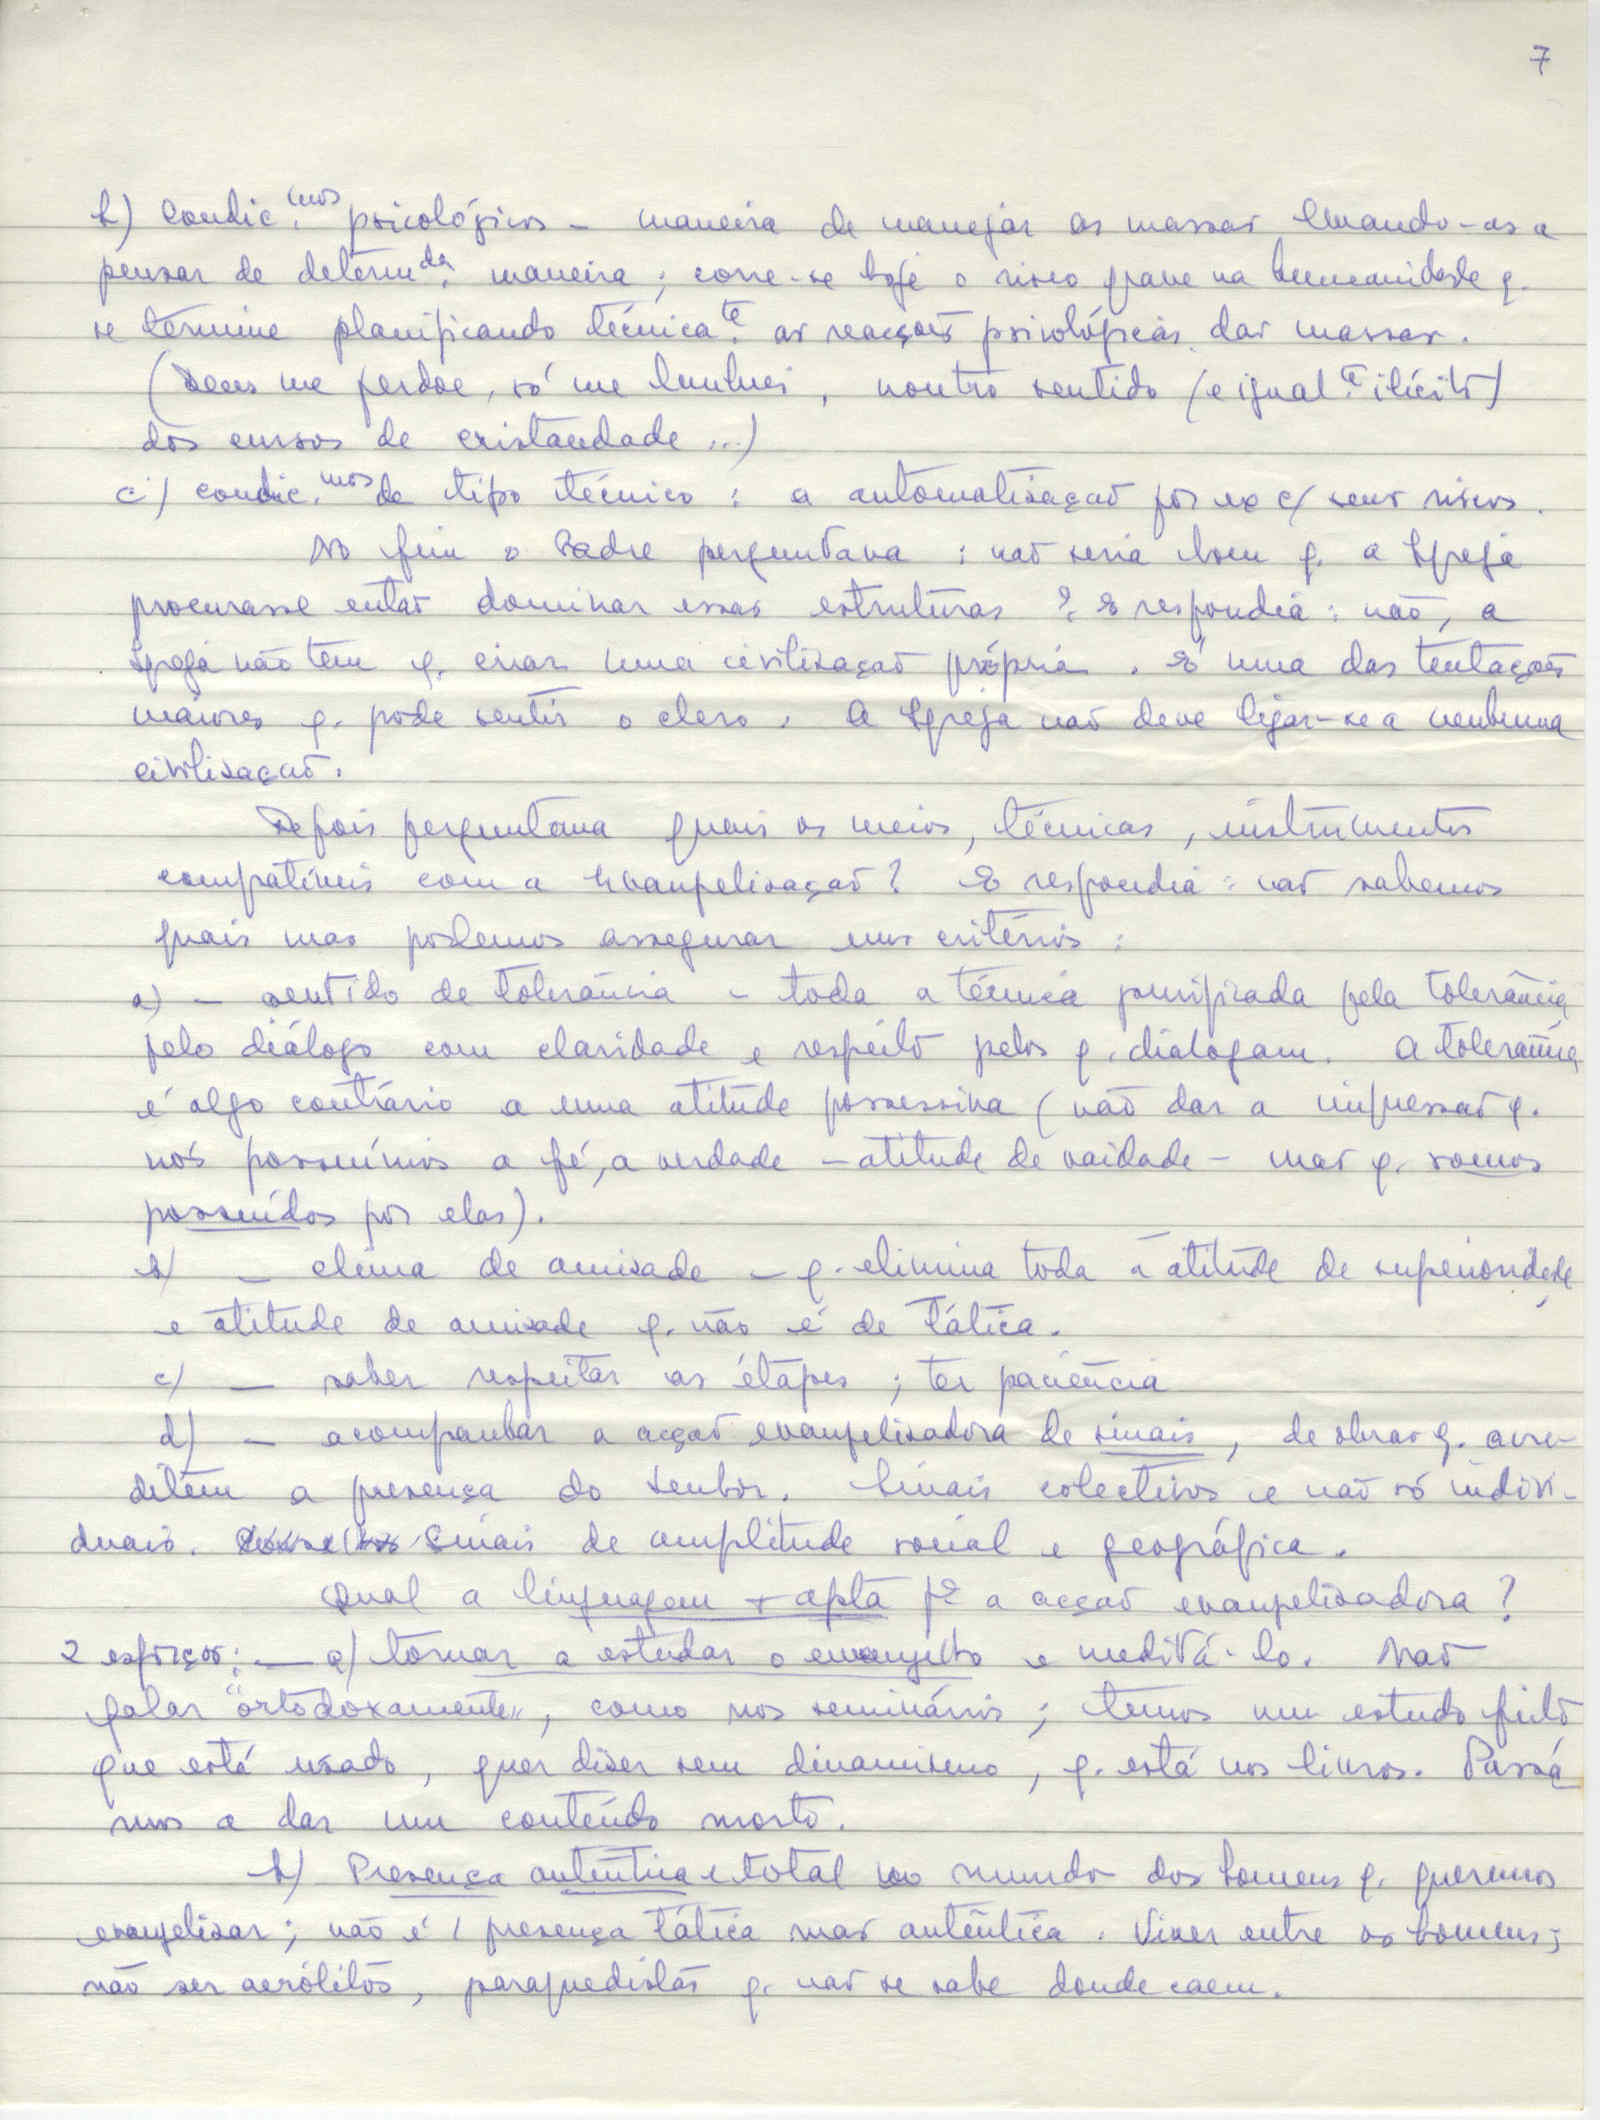 7
b) Condic.mos psicológicos - maneira de manejar as massas levando-as a
pensar de determ.da maneira; corre-se hoje o risco grave na humanidade q.
se termine planificando técnica.te as reacções psicológicas das massas.
(Deus me perdoe, só me lembrei, noutro sentido (e igual.te ilícito)
dos cursos de cristandade...)
c) condic.mos de tipo técnico: a automatisação por ex c/ seus riscos.
No fim o Padre perguntava: não seria bem q. a Igreja
procurasse então dominar essas estruturas? E respondia: não, a
Igreja não tem q. criar uma civilisação própria. É uma das tentações
maiores q. pode sentir o clero. A Igreja não deve ligar-se a nenhuma
civilisação.
Depois perguntava quais os meios, técnicas, instrumentos
compatíveis com a Evangelisação? E respondia: não sabemos
quais mas podemos assegurar uns critérios:
a) - sentido de tolerância - toda a técnica purificada pela tolerância
pelo diálogo com claridade e respeito pelos q. dialogam. A tolerância
é algo contrário a uma atitude possessiva (não dar a impressão q.
nós possuímos a fé, a verdade - atitude de vaidade - mas q. somos
possuídos por elas).
b) - clima de amisade - q. elimina toda a atitude de superioridade
e atitude de amisade q. não é de tática.
c) - saber respeitar as étapes; ter paciência
d) - acompanhar a acção evangelisadora de sinais, de obras q. acre-
ditem a presença do Senhor. Sinais colectivos e não só indivi-
duais. Sinais de amplitude social e geográfica.
Qual a linguagem + apta pª a acção evangelisadora?
2 esforços: - a) tornar a estudar o evangelho e meditá-lo. Não
falar "ortodoxamente", como nos seminários; temos um estudo feito
que está usado, quer diser sem dinamismo, q. está nos livros. Passá
mos a dar um conteúdo morto.
b) Presença autêntica e total no mundo dos homens q. queremos
evangelisar; não é 1 presença tática mas autêntica. Viver entre os homens;
não ser aerólitos, paraquedistas q. não se sabe donde caem.